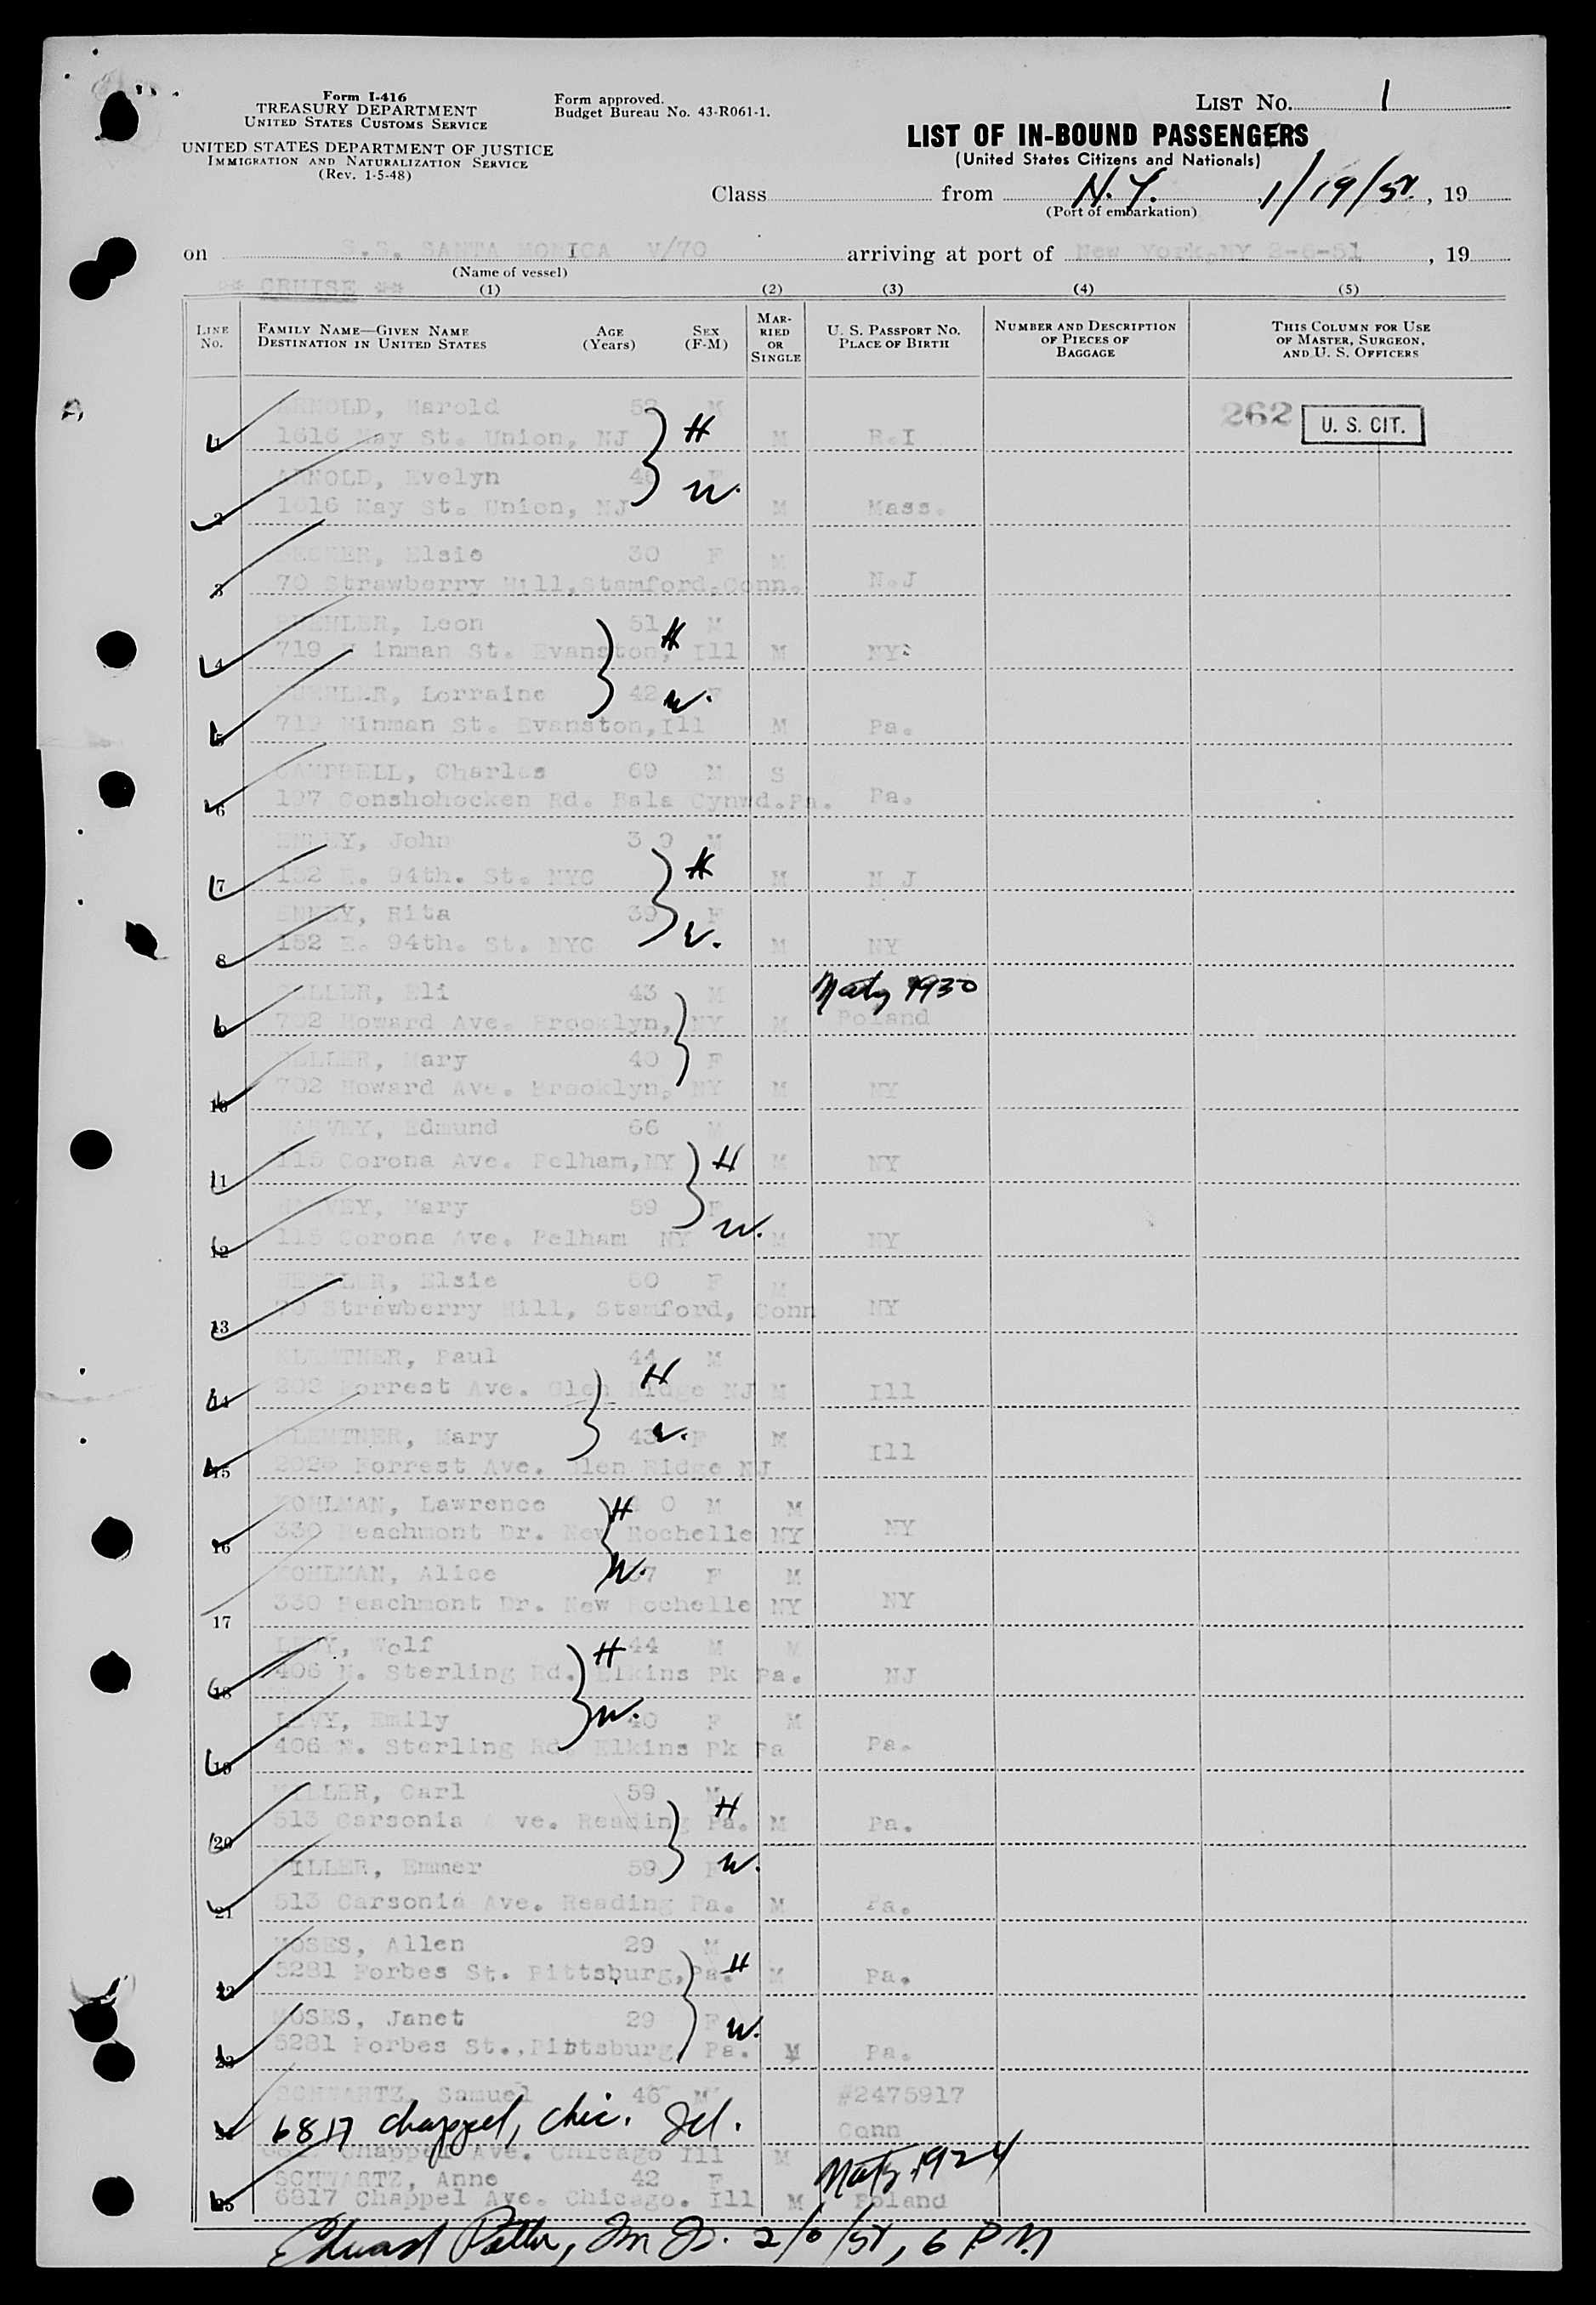 Form I-416
TREASURY DEPARTMENT
UNITED STATES CUSTOMS SERVICE
UNITED STATES DEPARTMENT OF JUSTICE
IMMIGRATION AND NATURALIZATION SERVICE
(Rev. 1-5-48)
Form approved.
Budget Bureau No. 43-R061-1.
LIST NO. 1
LIST OF IN-BOUND PASSENGERS
(United States Citizens and Nationals)
Class from N.Y. 1/19/51, 19
(Port of embarkation)
on S.S. SANTA MONICA V/70 arriving at port of New York, NY 2-6-51, 19
(Name of vessel)
** CRUISE **
(1) (2) (3) (4) (5)
LINE NO.
FAMILY NAME—GIVEN NAME
DESTINATION IN UNITED STATES
AGE (Years)
SEX (F-M)
MARRIED OR SINGLE
U. S. PASSPORT NO.
PLACE OF BIRTH
NUMBER AND DESCRIPTION OF PIECES OF BAGGAGE
THIS COLUMN FOR USE OF MASTER, SURGEON, AND U. S. OFFICERS
ARNOLD, Harold 52 M
1 1616 May St. Union, NJ H M R.I 262 U. S. CIT.
ARNOLD, Evelyn F
2 1616 May St. Union, NJ W. M Mass.
Elsie 30 F M
3 70 Strawberry Hill, Stamford, Conn. N.J
Leon 51 M H
4 719 Hinman St. Evanston, Ill M NY
Lorraine 42 F W.
5 719 Hinman St. Evanston, Ill M Pa.
CAMPBELL, Charles 69 M S
6 197 Conshohocken Rd. Bala Cynwd. Pa. Pa.
John 3 9 M H
7 152 E. 94th. St. NYC M N J
Rita 39 F W.
8 152 E. 94th. St. NYC M NY
Eli 43 M Natz 1930
9 702 Howard Ave. Brooklyn, NY M Poland
Mary 40 F
10 702 Howard Ave. Brooklyn, NY M NY
HARVEY, Edmund 66 M
11 115 Corona Ave. Pelham, NY H M NY
HARVEY, Mary 59 F
12 115 Corona Ave. Pelham NY W. M NY
Elsie F M
13 70 Strawberry Hill, Stamford, Conn NY
KLEMTNER, Paul 44 M
14 202 Forrest Ave. Glen Ridge NJ H M Ill
KLEMTNER, Mary 43 W. F M
15 202 Forrest Ave. Glen Ridge NJ Ill
KOHLMAN, Lawrence 0 M M H
16 330 Beachmont Dr. New Rochelle NY NY
KOHLMAN, Alice 37 F M W.
17 330 Beachmont Dr. New Rochelle NY NY
LEVY, Wolf 44 M M H
18 406 N. Sterling Rd. Elkins Pk Pa. NJ
LEVY, Emily 40 F M W.
19 406 N. Sterling Rd. Elkins Pk Pa Pa.
MILLER, Carl 59 M H
20 513 Carsonia Ave. Reading Pa. M Pa.
MILLER, Emmer 59 F W.
21 513 Carsonia Ave. Reading Pa. M Pa.
MOSES, Allen 29 M
22 5281 Forbes St. Pittsburg, Pa. H M Pa.
MOSES, Janet 29 F W.
23 5281 Forbes St., Pittsburg Pa. M Pa.
SCHWARTZ, Samuel 46 M #2475917
24 6817 Chappel, Chic. Ill. Conn
6817 Chappel Ave. Chicago Ill M
SCHWARTZ, Anne 42 F Natz 1924
25 6817 Chappel Ave. Chicago. Ill M Poland
2/6/51, 6 PM